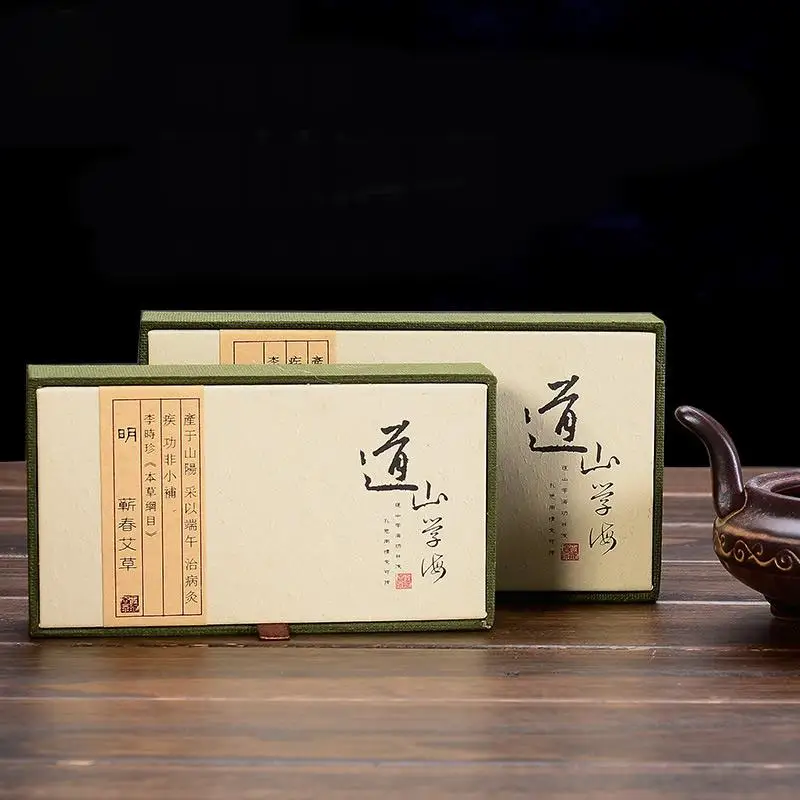 產于山陽 采以端午 治病灸
疾 功非小補
李時珍《本草綱目》
明 蘄春艾草
道山学海
產
疾
李
道山学海